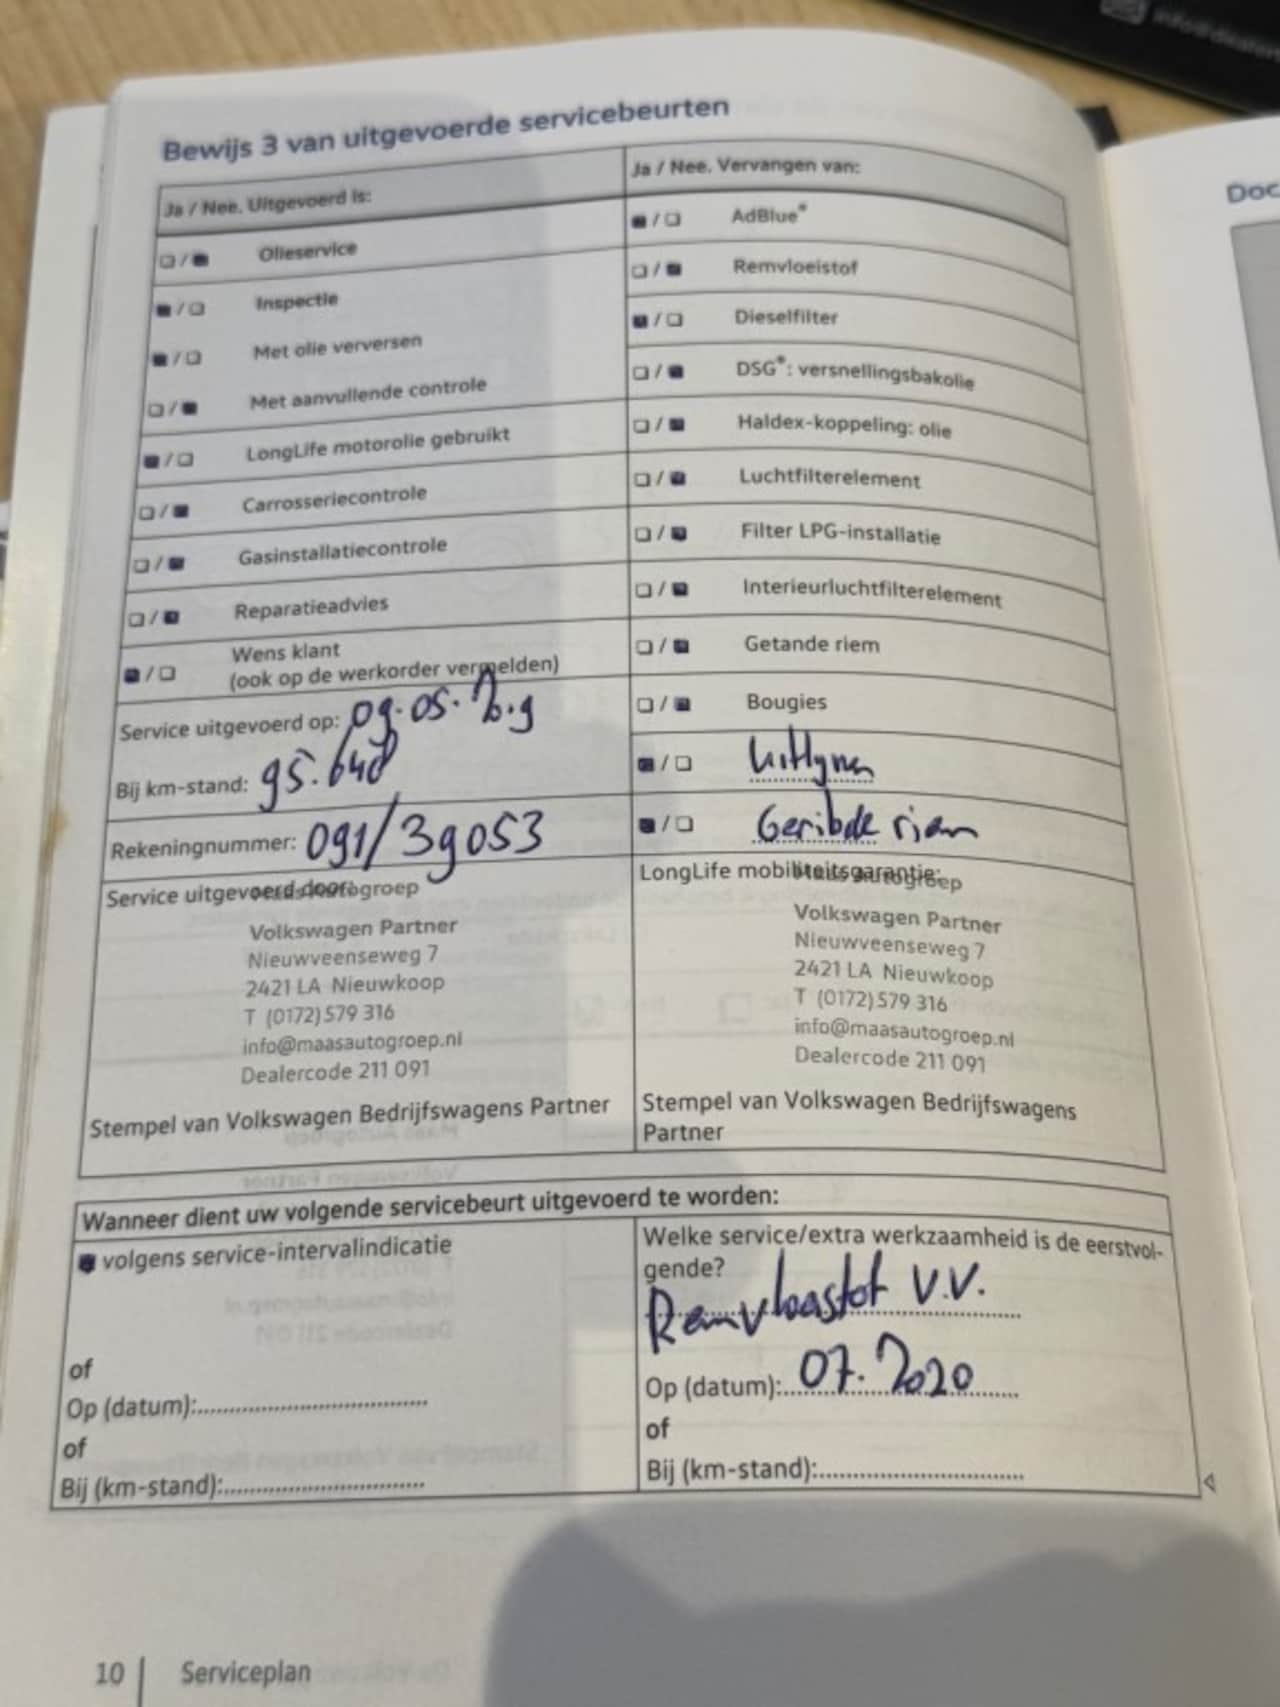 Bewijs 3 van uitgevoerde servicebeurten
Ja / Nee. Uitgevoerd is:
Olieservice
Inspectie
Met olie verversen
Met aanvullende controle
LongLife motorolie gebruikt
Carrosseriecontrole
Gasinstallatiecontrole
Reparatieadvies
Wens klant
(ook op de werkorder vermelden)
Service uitgevoerd op: 09.05.
Bij km-stand: 95.648
Rekeningnummer: 091/39053
Service uitgevoerd door:
Maas Autogroep
Volkswagen Partner
Nieuwveenseweg 7
2421 LA Nieuwkoop
T (0172) 579 316
info@maasautogroep.nl
Dealercode 211 091
Stempel van Volkswagen Bedrijfswagens Partner
Ja / Nee. Vervangen van:
AdBlue®
Remvloeistof
Dieselfilter
DSG®: versnellingsbakolie
Haldex-koppeling: olie
Luchtfilterelement
Filter LPG-installatie
Interieurluchtfilterelement
Getande riem
Bougies
Uitlijnen
Geribde riem
LongLife mobiliteitsgarantie:
Maas Autogroep
Volkswagen Partner
Nieuwveenseweg 7
2421 LA Nieuwkoop
T (0172) 579 316
info@maasautogroep.nl
Dealercode 211 091
Stempel van Volkswagen Bedrijfswagens
Partner
Wanneer dient uw volgende servicebeurt uitgevoerd te worden:
volgens service-intervalindicatie
of
Op (datum):
of
Bij (km-stand):
Welke service/extra werkzaamheid is de eerstvol-
gende?
Remvloeistof V.V.
Op (datum): 07.2020
of
Bij (km-stand):
10 Serviceplan
Doc